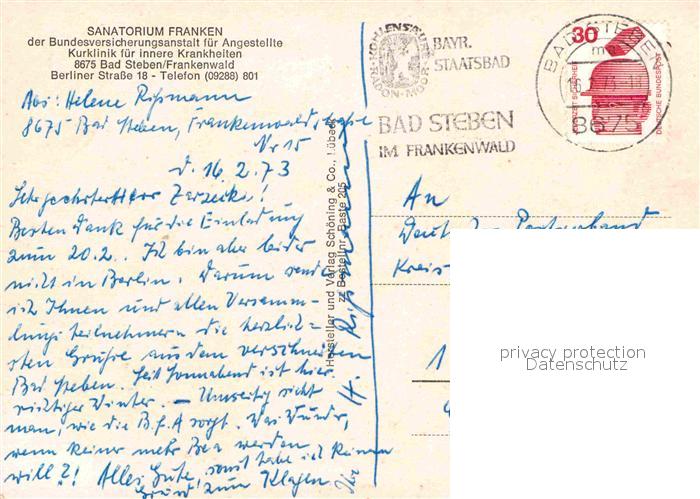 SANATORIUM FRANKEN
der Bundesversicherungsanstalt für Angestellte
Kurklinik für innere Krankheiten
8675 Bad Steben/Frankenwald
Berliner Straße 18 - Telefon (09288) 801
Abs: Helene Rißmann
8675 Bad Steben, Frankenwaldstraße
Nr 15
d. 16.2.73
Sehr geehrter Herr
Besten Dank für die Einladung
zum 20.2. Ich bin aber leider
nicht in Berlin. Darum sende
ich Ihnen und allen Versamm-
lungsteilnehmern die herzlich=
sten Grüße aus dem verschneiten
Bad Steben. Seit Sonnabend ist hier
richtiger Winter. - sieht
man, wie die B.f.A sorgt. Was Wunder,
wenn keiner mehr werden
will?! Alles Gute, sonst habe ich keinen
Grund zum Klagen.
Ihre
H. Rißmann
Hersteller und Verlag Schöning & Co., Lübeck
zu Bestellnr. Baste 205
RADON-MOOR
BAYR.
STAATSBAD
BAD STEBEN
IM FRANKENWALD
BAD STEBEN
8675
30
DEUTSCHE BUNDESPOST
An
Kreis
1
privacy protection
Datenschutz